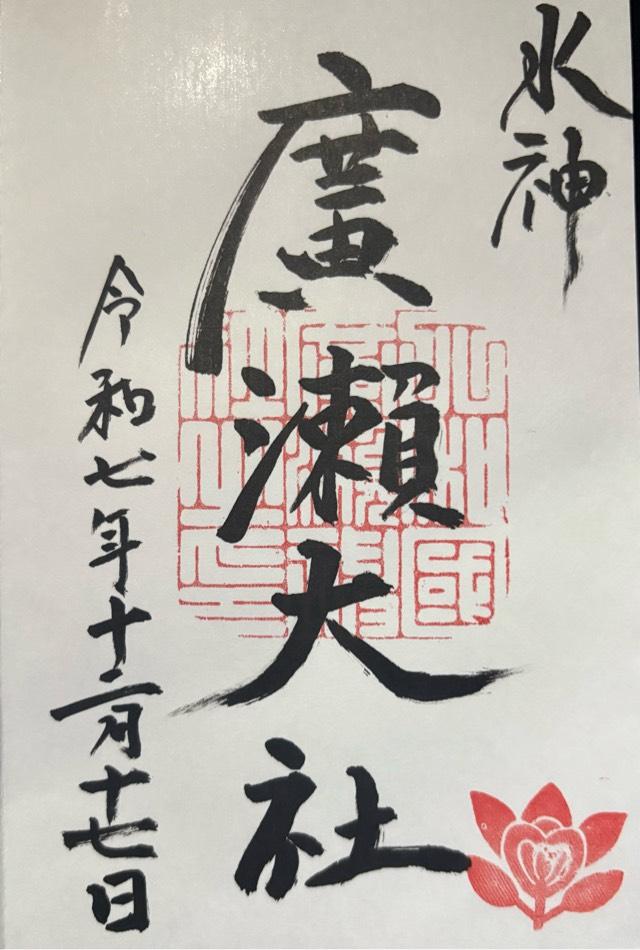 水神
廣瀬大社
令和七年十二月十七日